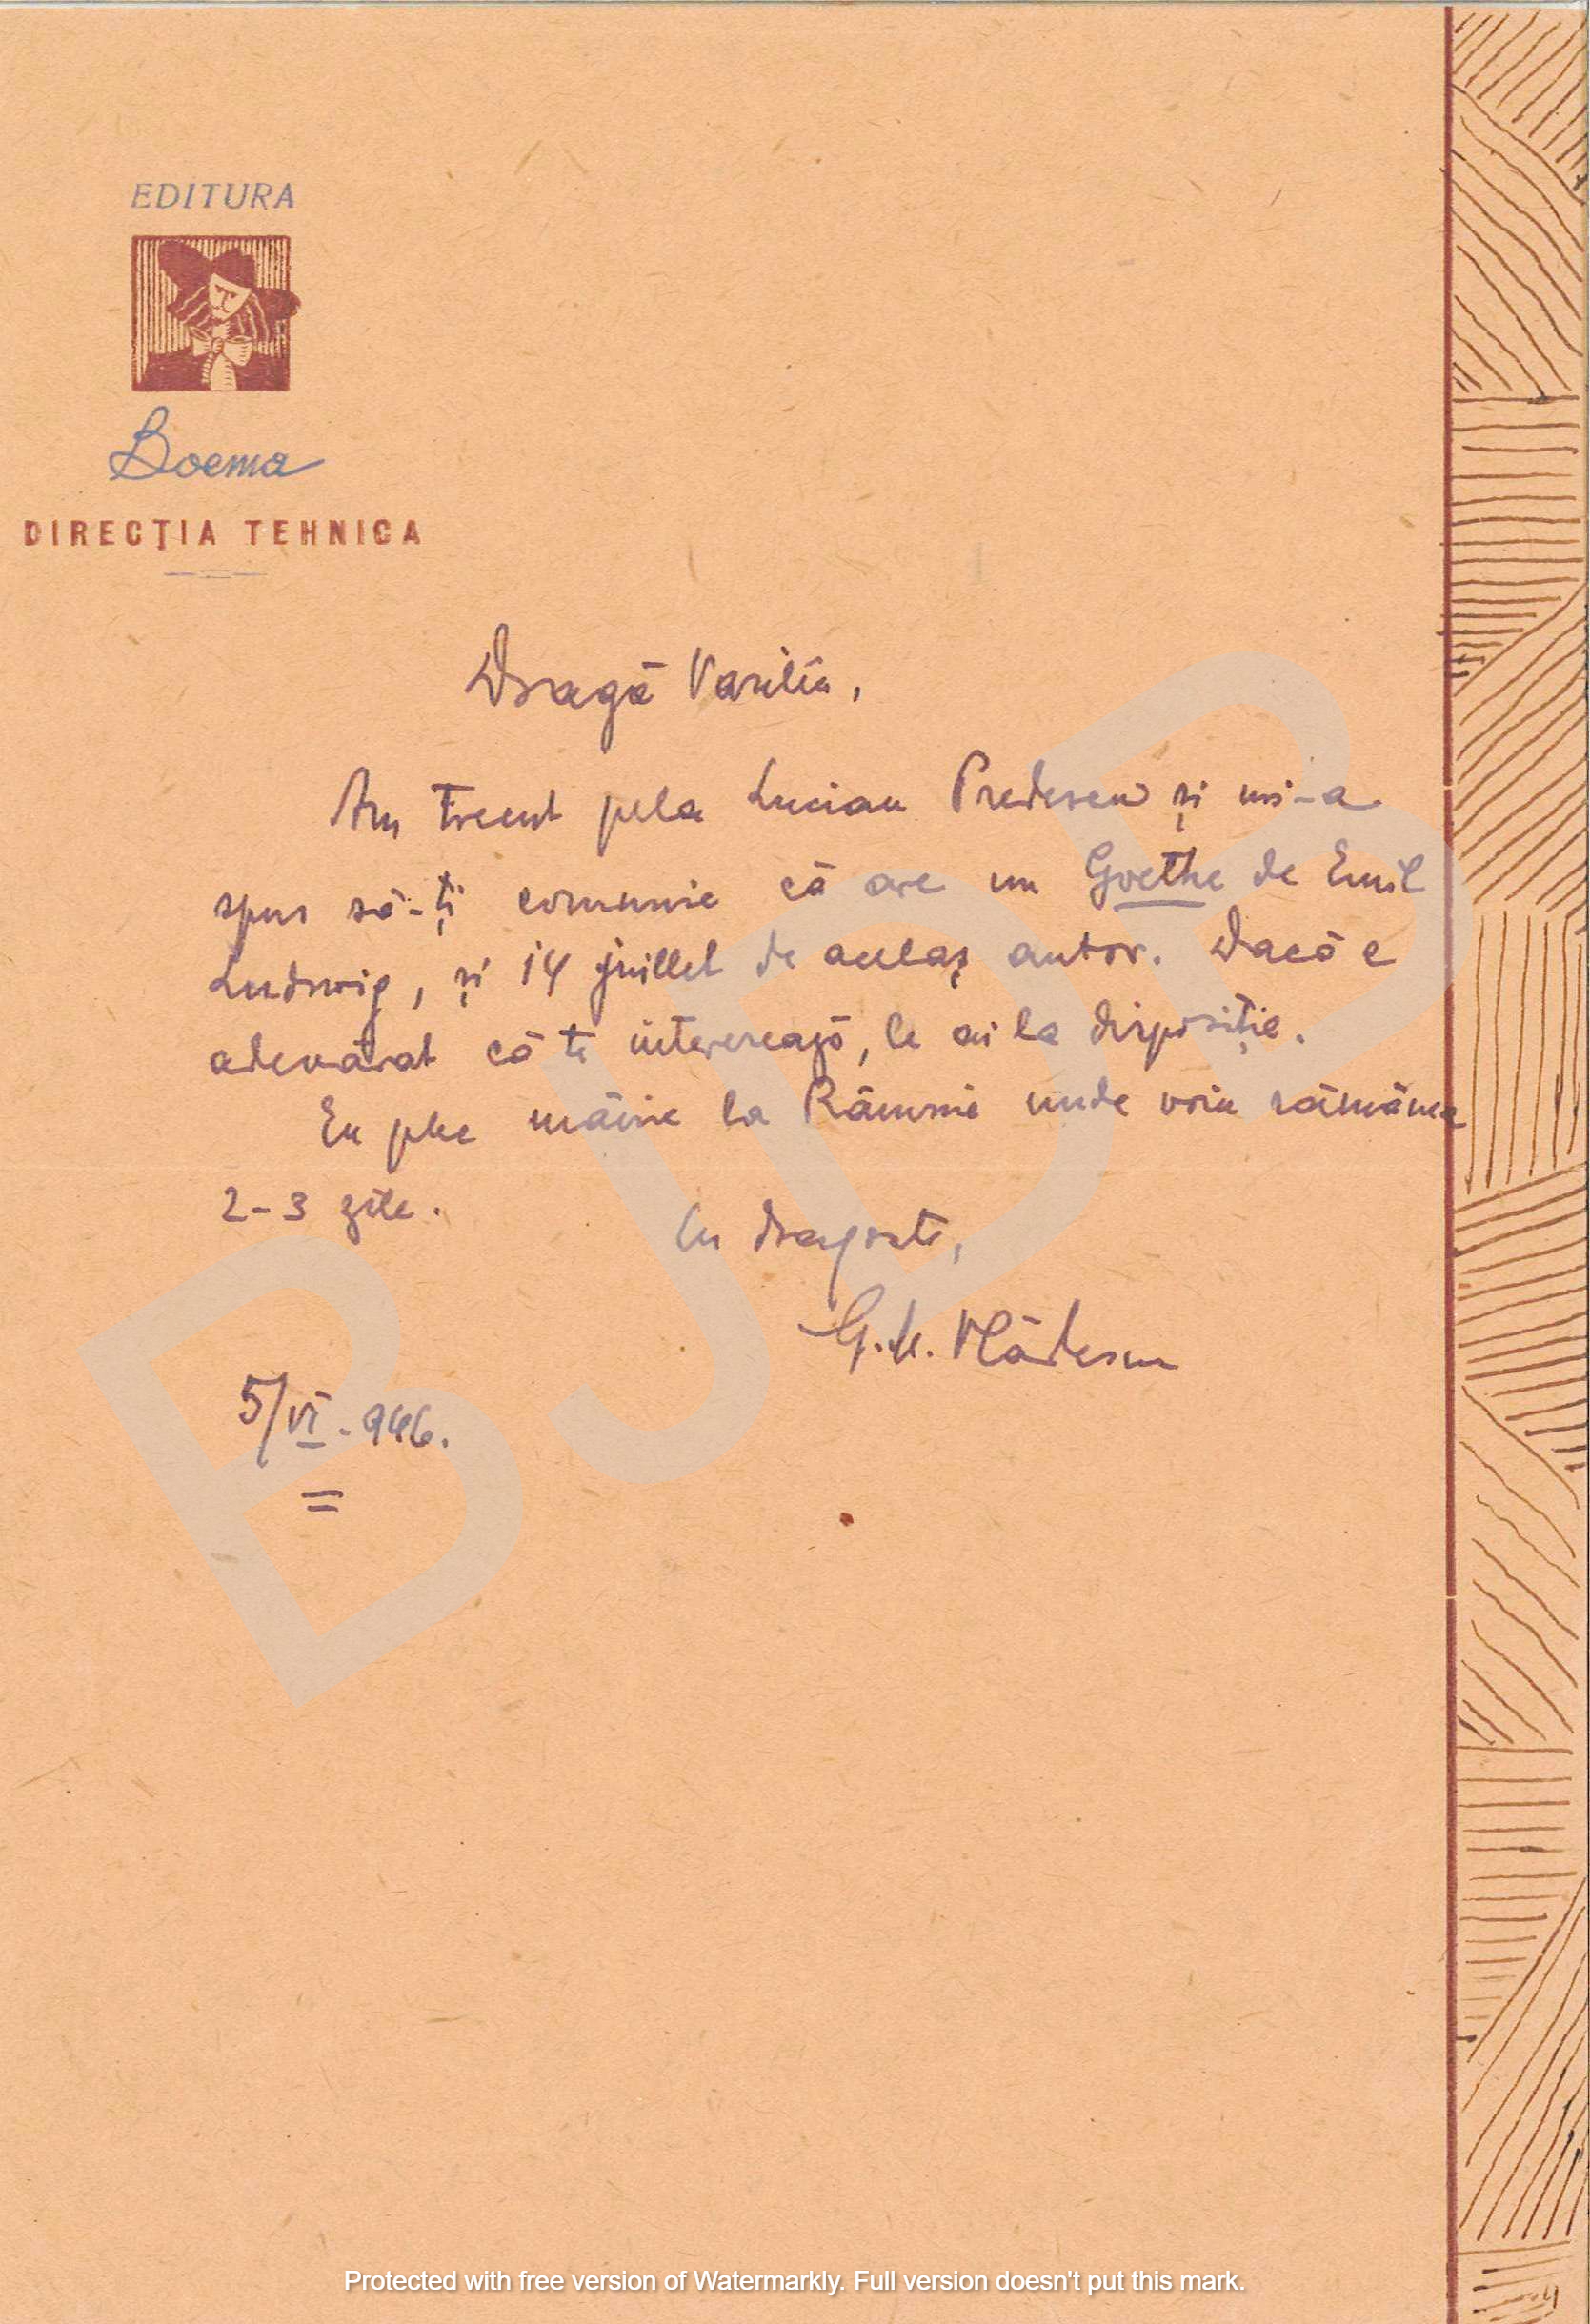 EDITURA
Boema
DIRECȚIA TEHNICA
Dragă Vasile,
Am trecut pela Lucian Predescu și mi-a
spus să-ți comunic că are un Goethe de Emil
Ludwig, și 14 juillet de acelaș autor. Dacă e
adevărat că te interesează, le ai la dispoziție.
Eu plec mâine la Râmnic unde voiu rămânea
2-3 zile.
Cu dragoste,
G. M. Vlădescu
5/VI-946.
BJDB
Protected with free version of Watermarkly. Full version doesn't put this mark.